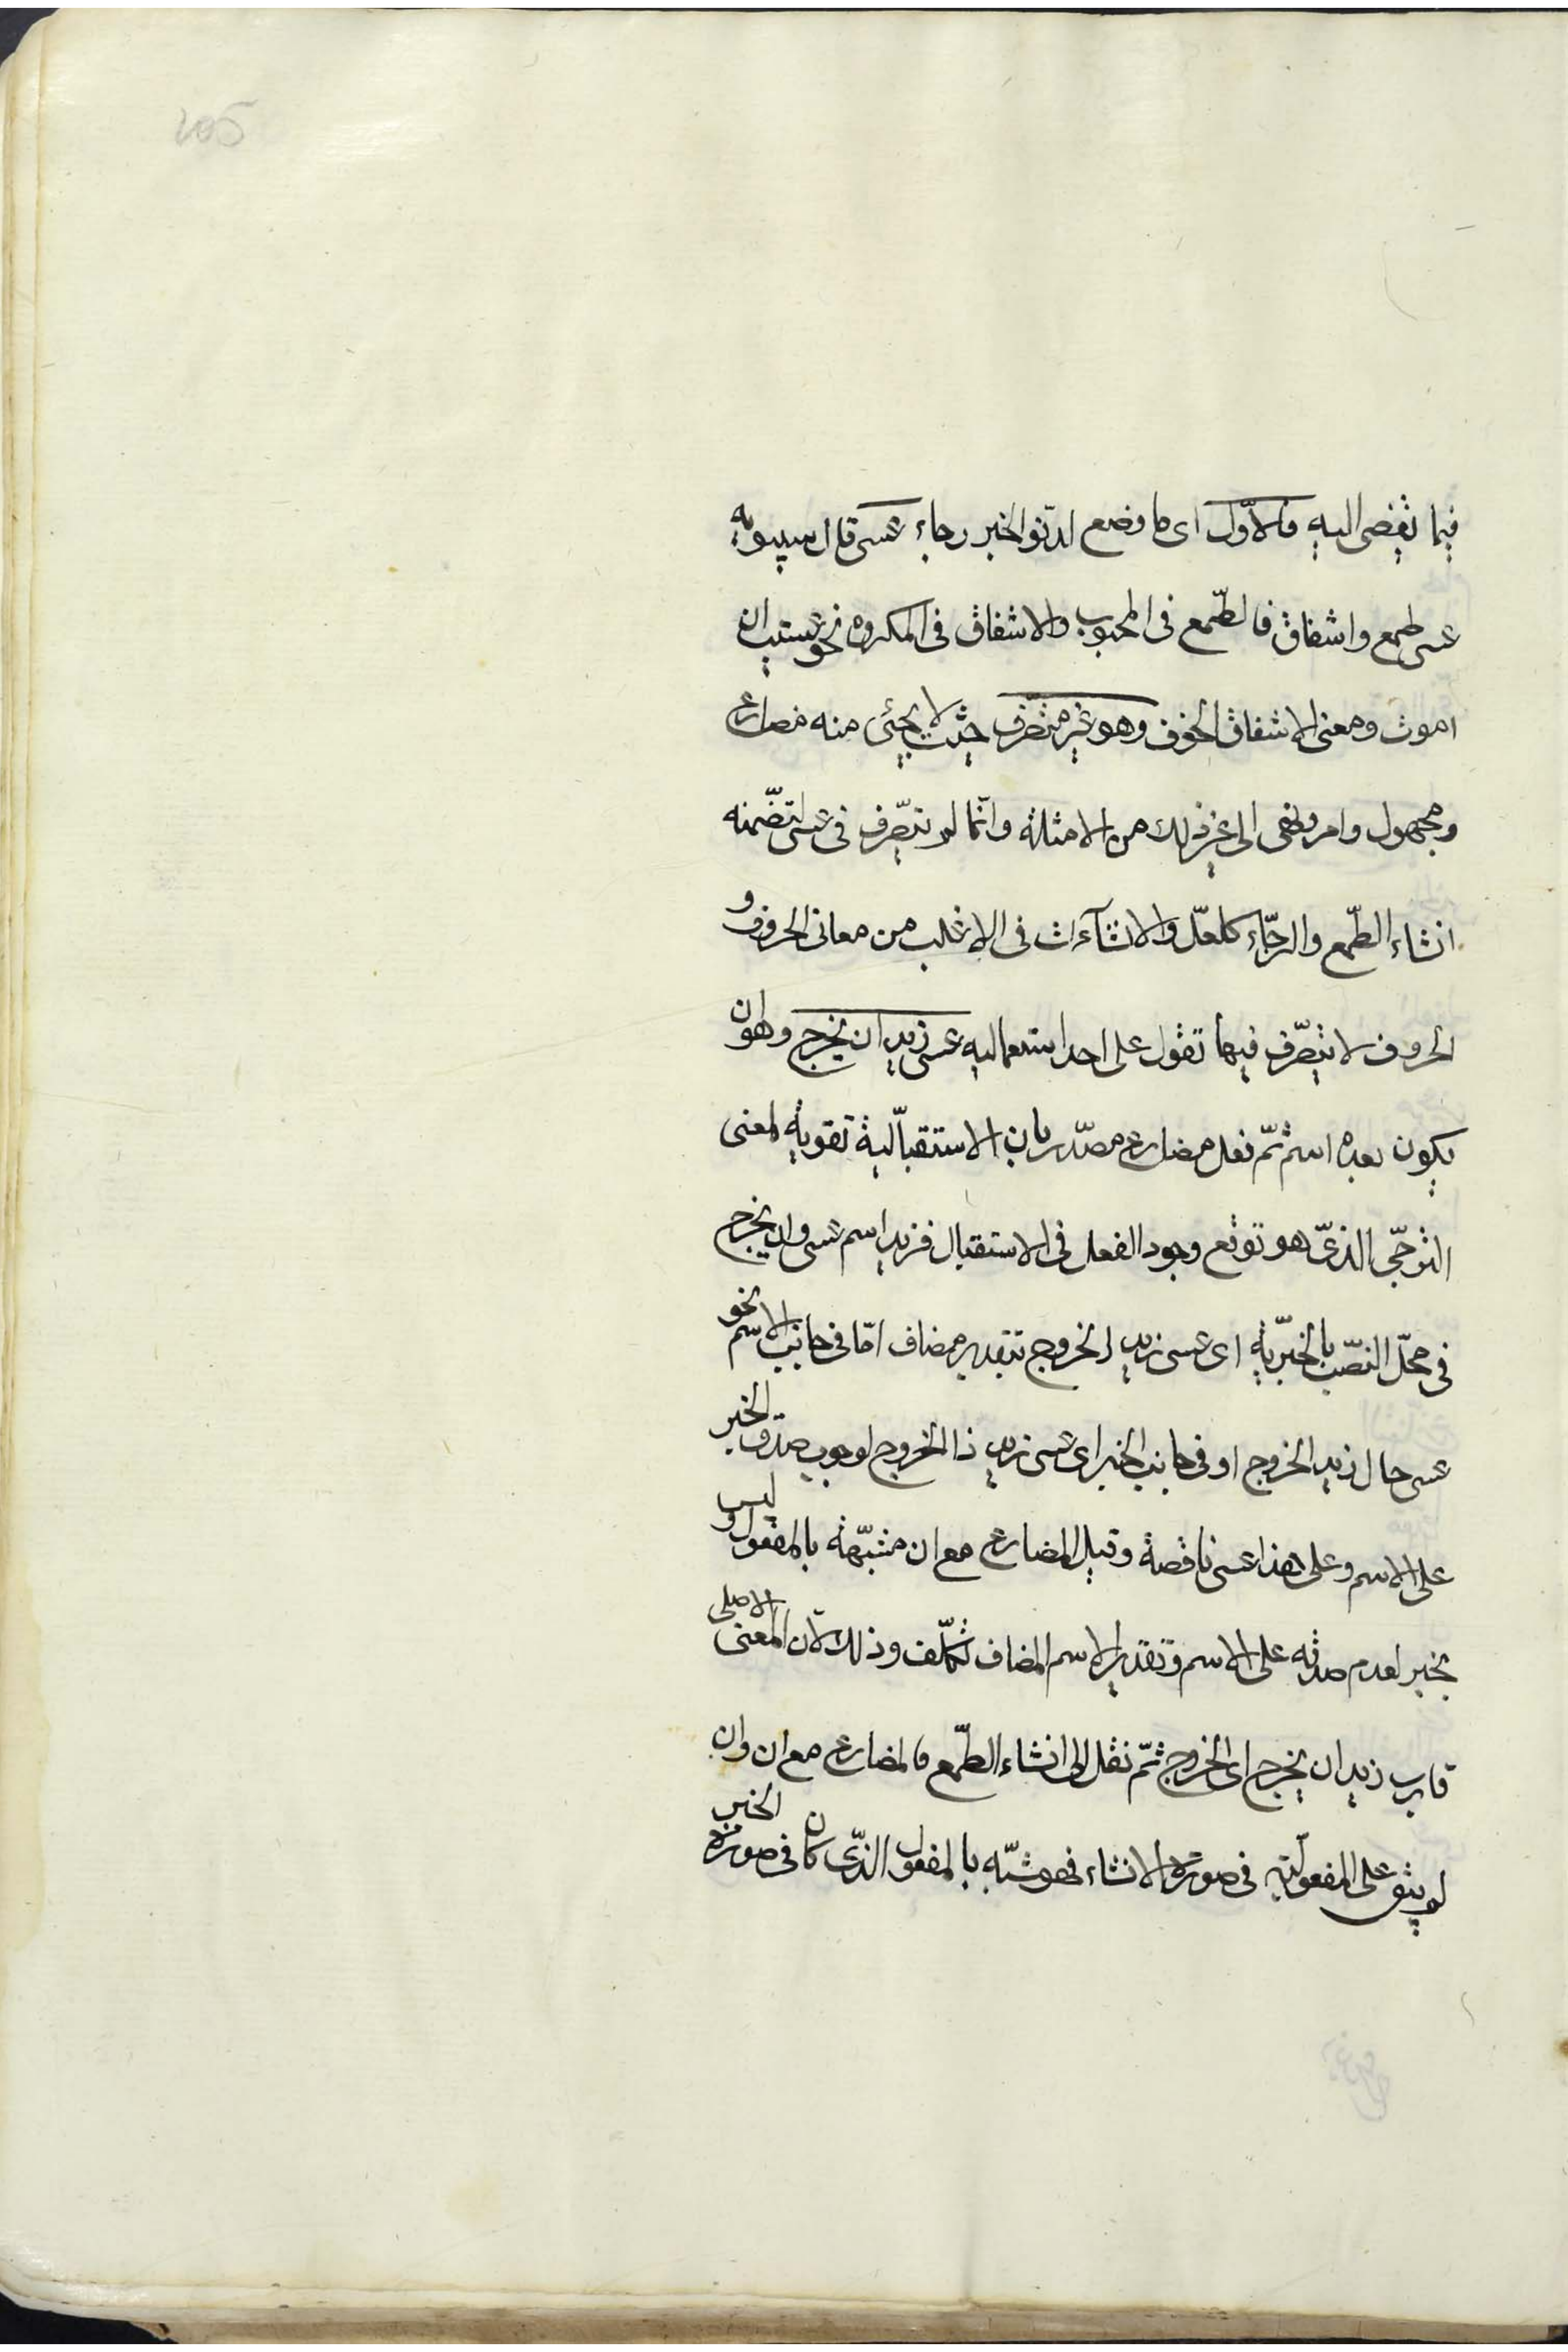 205
فيما يفضى اليه فالاوّل اى ما وضع لدنوّ الخبر رجاء عسى قال سيبويه
عسى طمع واشفاق فالطّمع فى المحبوب والاشفاق فى المكروه نحو عسيت ان
اموت ومعنى الاشفاق الخوف وهو غير متصّرف حيث لا يجئى منه مضارع
ومجهول وامر ونهى الى غير ذلك من الامثلة وانّما لم يتصّرف فى عسى لتضّمنه
انشاء الطّمع والرجّاء كلعلّ والانشآءات فى الاغلب من معانى الحروف و
الحروف لا يتصّرف فيها تقول على احد استعماليه عسى زيد ان يخرج وهو ان
يكون بعده اسم ثمّ فعل مضارع مصدّر بان الاستقباليّة تقوية لمعنى
الترجّى الذىّ هو توقع وجود الفعل فى الاستقبال فزيد اسم عسى وان يخرج
فى محلّ النصّب بالخبريّة اى عسى زيد الخروج بتقدير مضاف امّا فى جانب الاسم نحو
عسى حال زيد الخروج او فى جانب الخبر اى عسى زيد ذا الخروج لوجوب صدق الخبر
على الاسم وعلى هذا عسى ناقصة وقيل المضارع مع ان مشبّهة بالمفعول وليس
بخبر لعدم صدقه على الاسم وتقدير الاسم المضاف تكلّف وذلك لانّ المعنى الاصلى
قارب زيد ان يخرج اى الخروج ثمّ نقل الى انشاء الطّمع فالمضارع مع ان وان
لم يبق على المفعوليّة فى صورة الانشاء فهو شبّه بالمفعول الذّى كان فى صورة الخبر